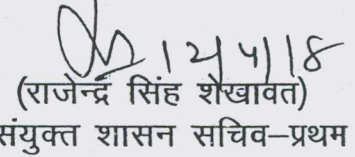 (राजेन्द्र सिंह शेखावत)
संयुक्त शासन सचिव–प्रथम